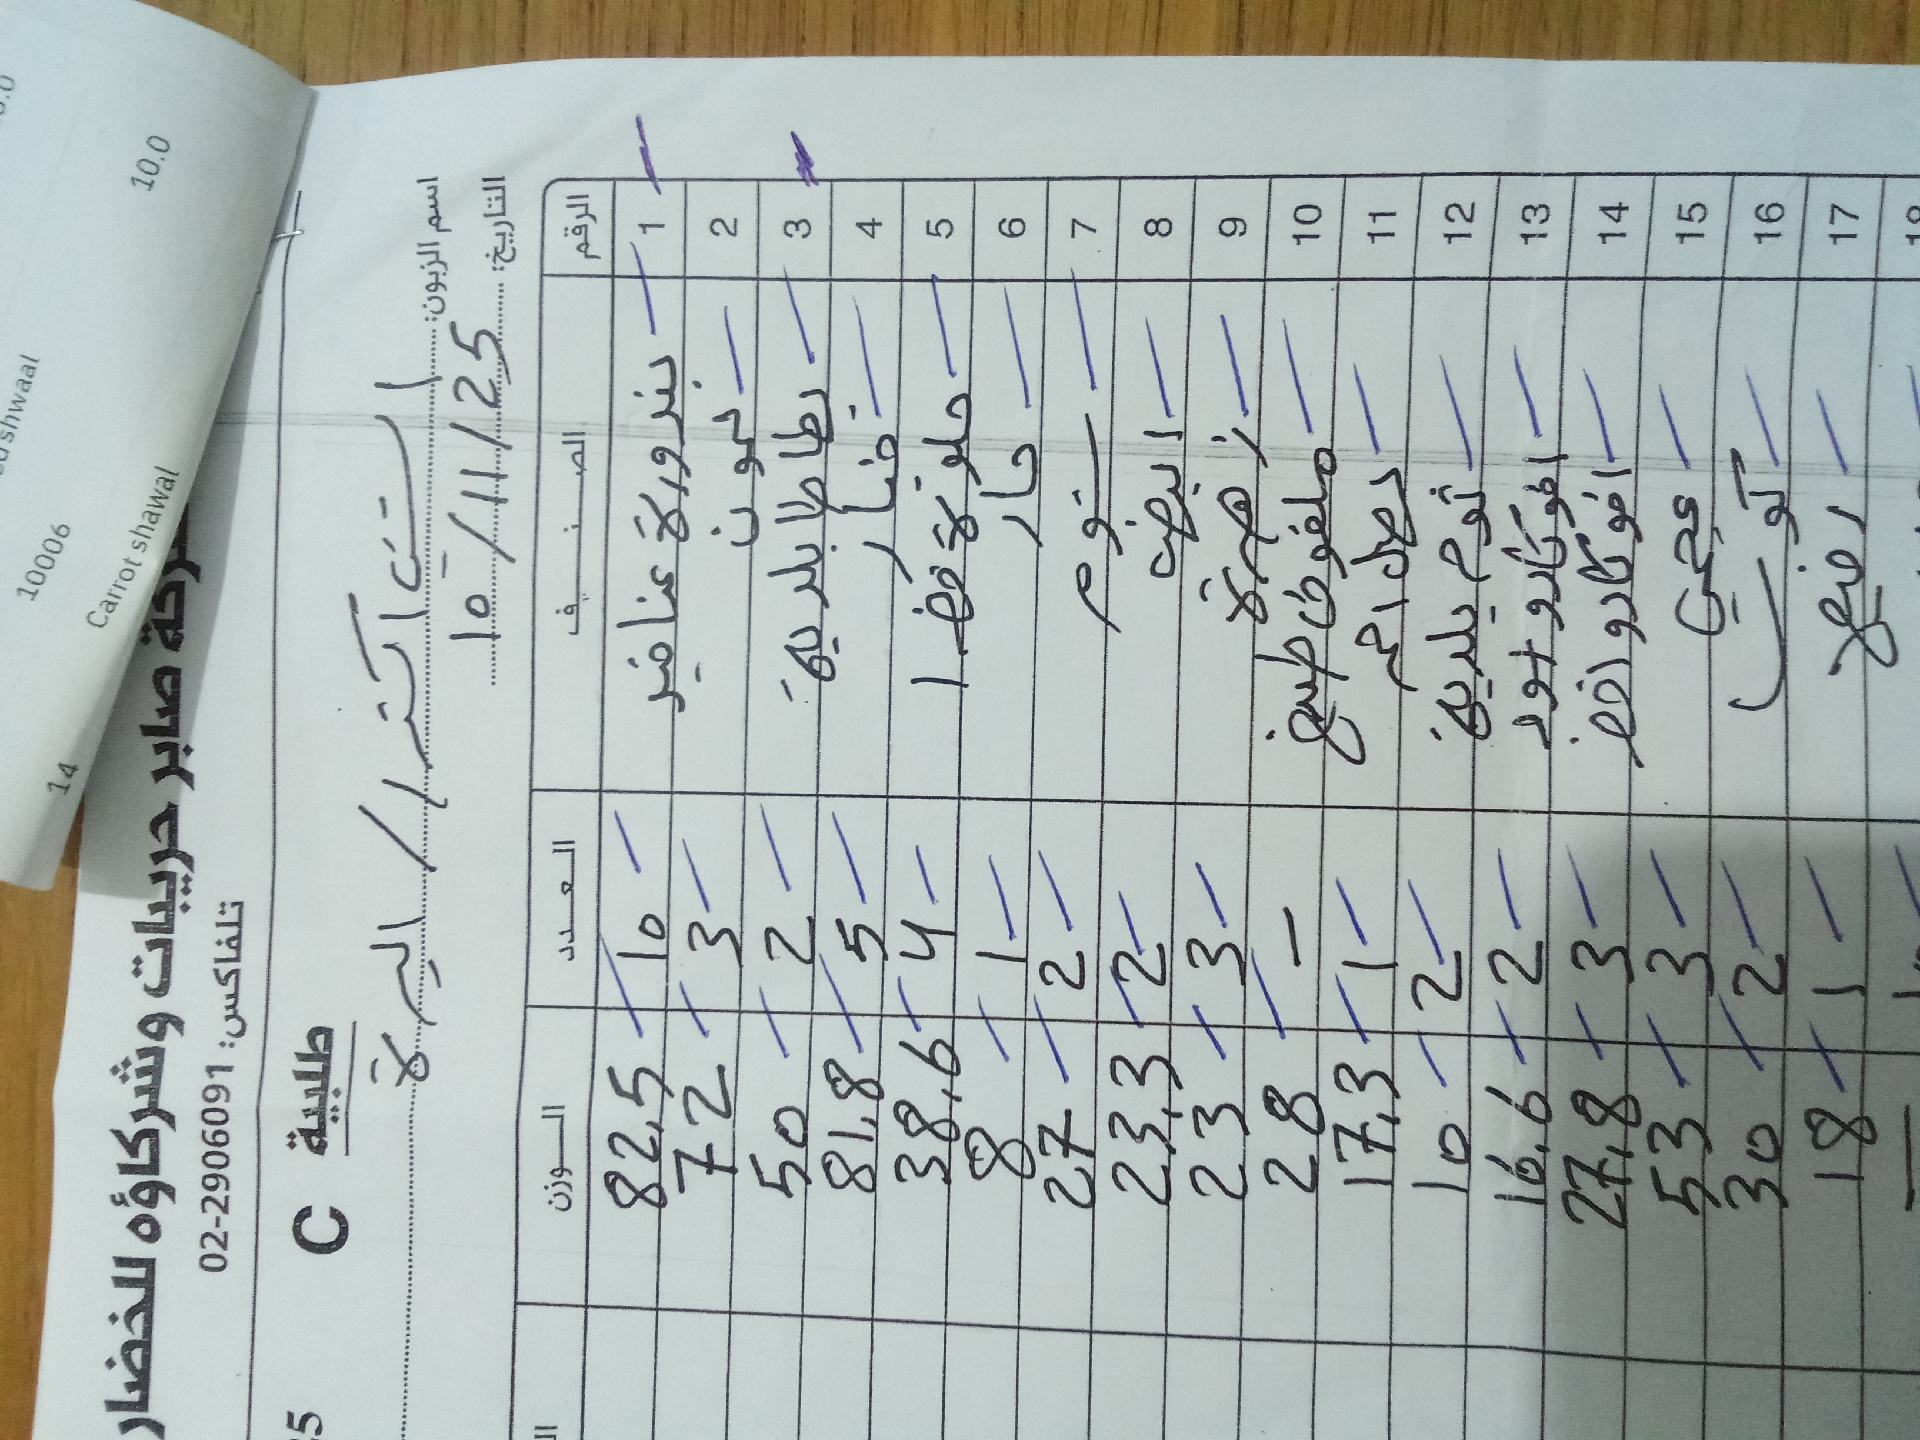 ed shwaal
10006
Carrot shawal 10.0
14
شركة صابر حريبات وشركاؤه للخضار
تلفاكس: 02-2906091
C طلبية
اسم الزبون: / البيرة
التاريخ: 10/11/25
الرقم الصنف العدد الوزن
1 بندورة عناقيد 10 82,5
2 ليمون 3 72
3 بطاطا بلدية 2 50
4 خيار 5 81,8
5 حلوة خضرا 4 38,6
6 حار 1 8
7 ثوم 2 27
8 ابيض 2 23,3
9 زهرة 3 23
10 ملفوف طبيخ - 28
11 بصل احمر 1 17,3
12 ثوم بلدية 2 10
13 افوكادو اسود 2 16,6
14 افوكادو اخضر 3 27,8
15 عجمي 3 53
16 2 30
17 1 18
18